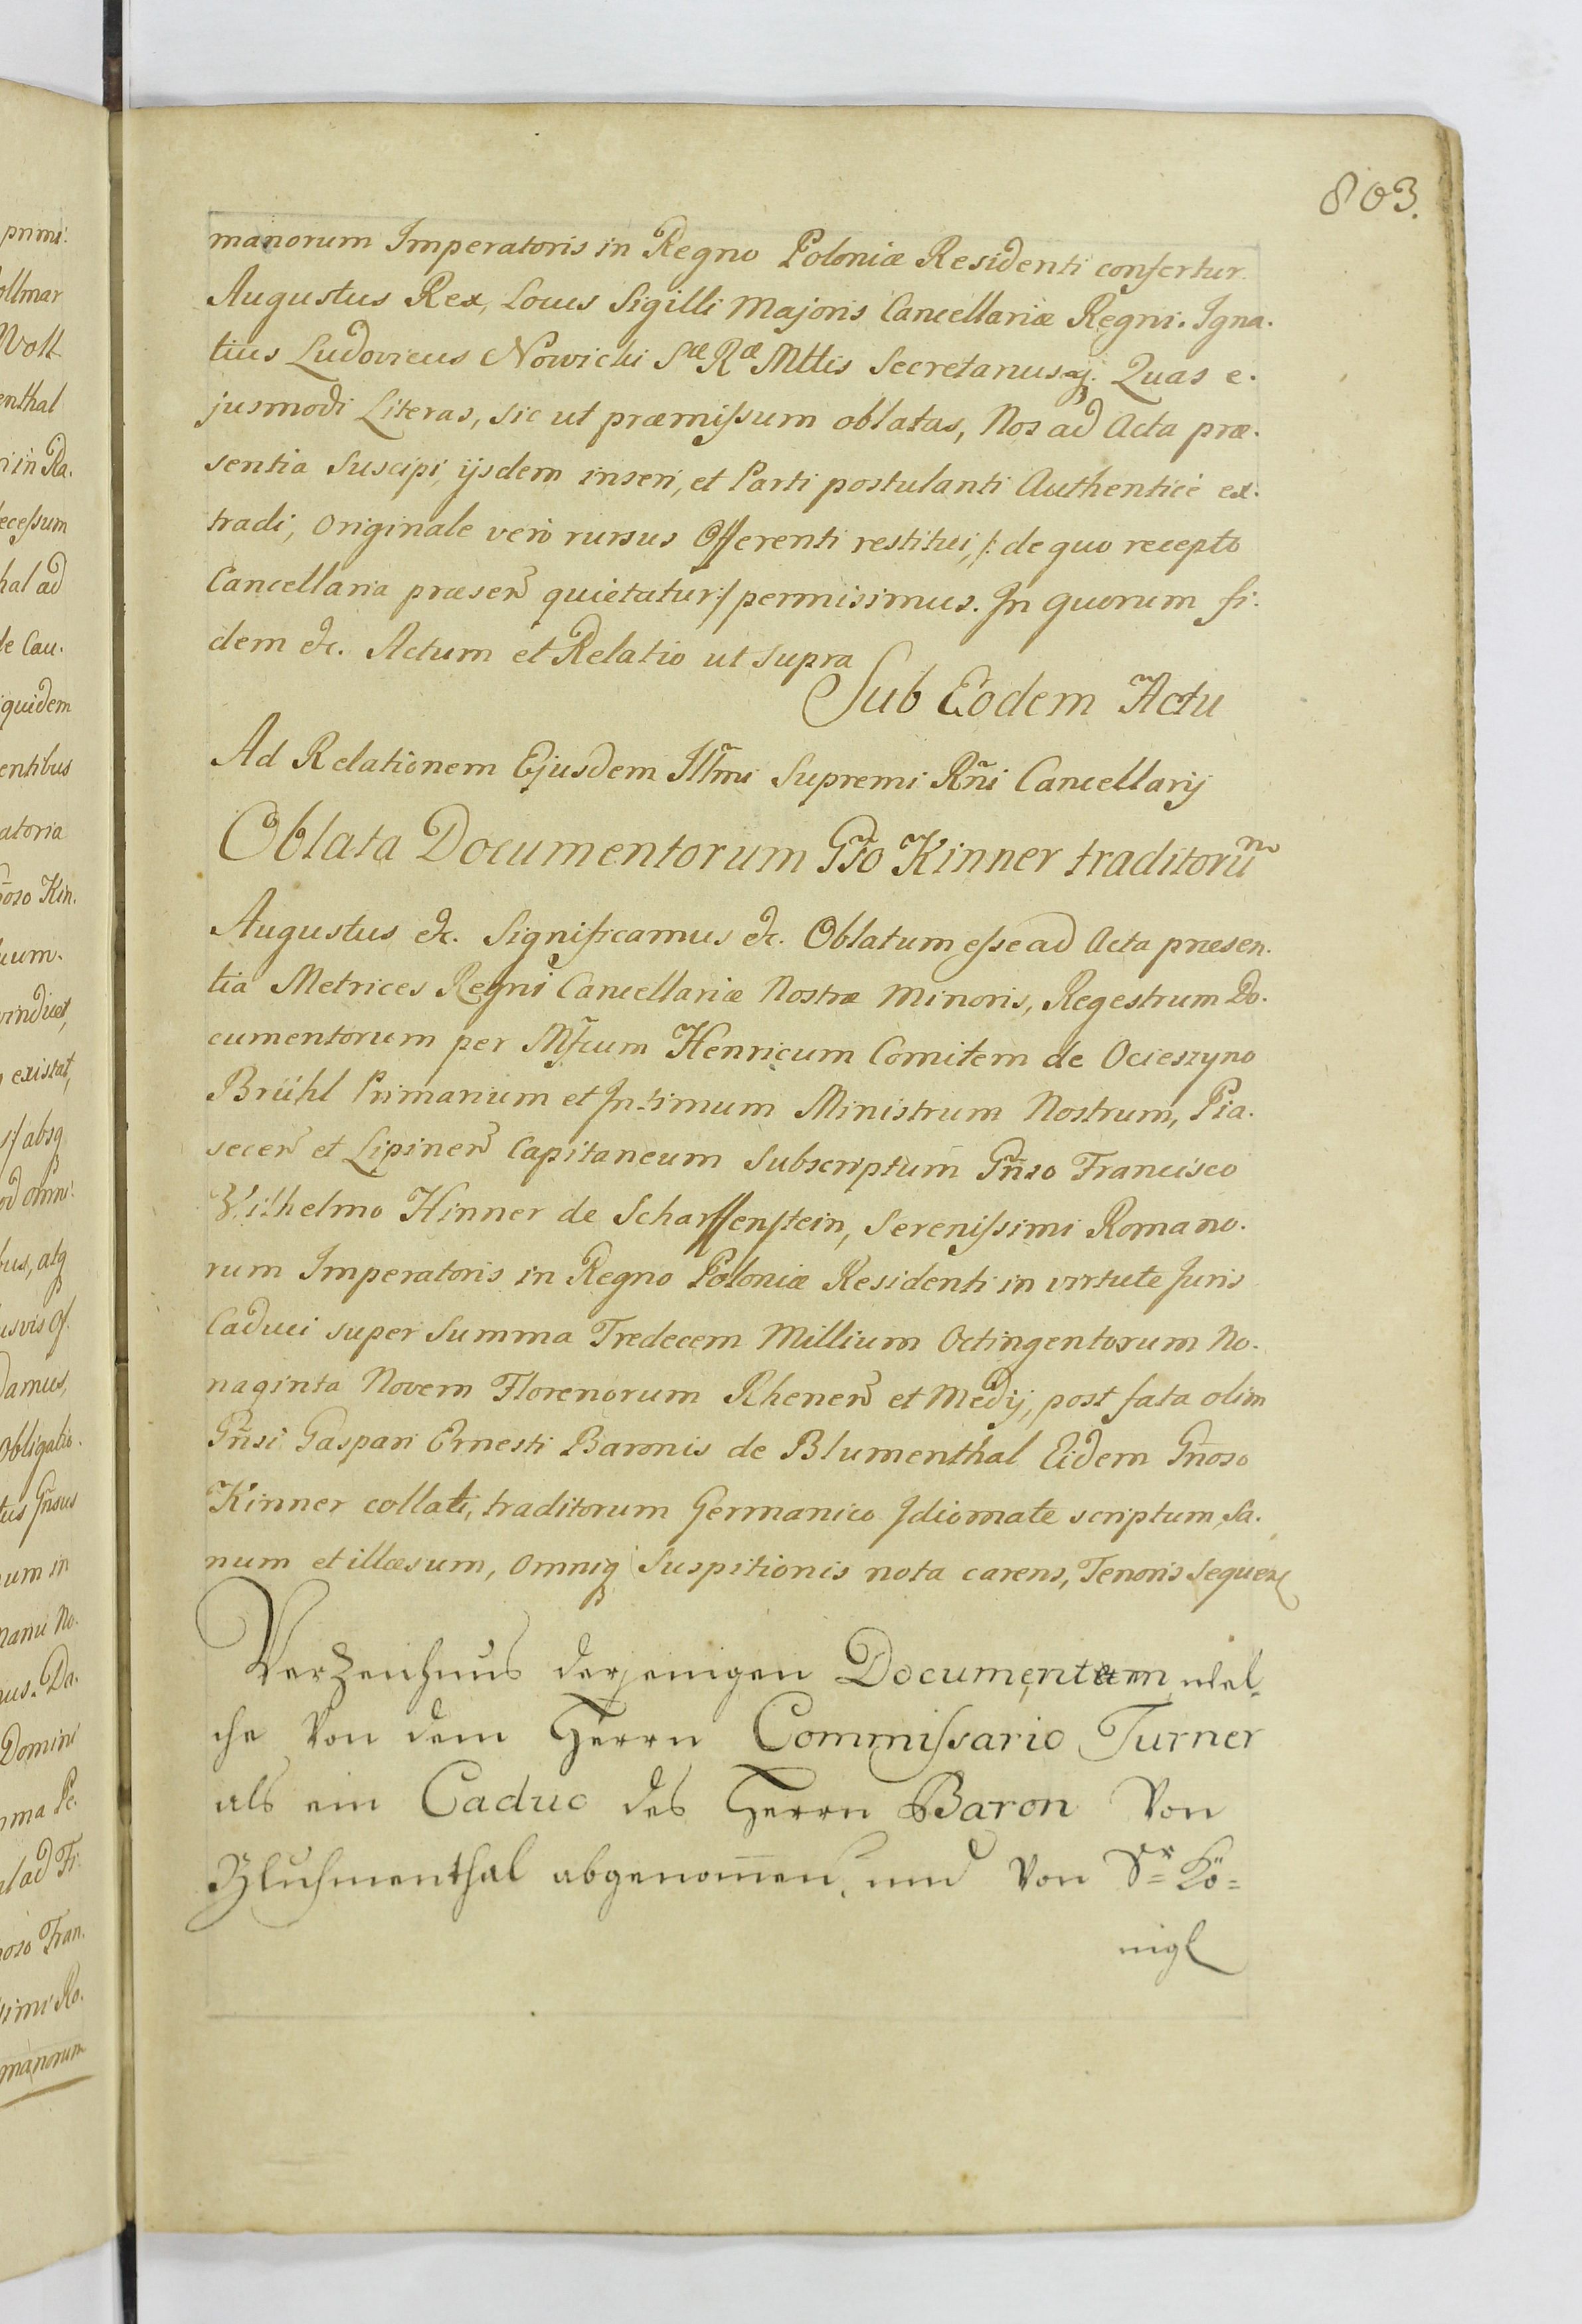 803.
manorum Imperatoris in Regno Poloniæ Residenti confertur.
Augustus Rex, Locus Sigilli Majoris Cancellariæ Regni. Igna-
tius Ludovicus Nowicki Sæ Ræ Mttis Secretarius. Quas e-
jusmodi Literas, sic ut præmissum oblatas, Nos ad Acta præ-
sentia Suscipi, ijsdem inseri, et Parti postulanti Authenticè ex-
tradi, Originale verò rursus Offerenti restitui, /: de quo recepto
Cancellaria præsen quietatur :/ permisimus. In quorum fi-
dem &c. Actum et Relatio ut supra
Sub Eodem Actu
Ad Relationem Ejusdem Illmi Supremi Rñi Cancellarij
Oblata Documentorum Gso Kinner traditorum
Augustus &c. Significamus &c. Oblatum esse ad Acta præsen-
tia Metrices Regni Cancellariæ Nostræ Minoris, Regestrum Do-
cumentorum per Mfcum Henricum Comitem de Ocieszyno
Brühl Primarium et Intimum Ministrum Nostrum, Pia-
secen et Lipinen Capitaneum Subscriptum Gñso Francisco
Wilhelmo Kinner de Scharffenstein, Serenissimi Romano-
rum Imperatoris in Regno Poloniæ Residenti in virtute Juris
Caduci super Summa Tredecem Millium Octingentorum No-
naginta Novem Florenorum Rhenen et Medij, post fata olim
Gñsi Gaspari Ernesti Baronis de Blumenthal Eidem Gñoso
Kinner collati, traditorum Germanico Idiomate scriptum, Sa-
num et illæsum, omniq Suspitionis nota carens, Tenoris sequen
Verzeichnus derjenigen Documenten, wel-
che Von dem Herrn Commissario Turner
als ein Caduc des Herrn Baron Von
Bluhmenthal abgenom̄en, und Von Sr= Kö=
nigl